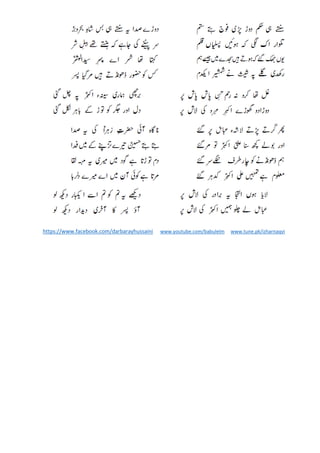 سنتے ہی حکم دوڑ پڑی فوج بے ستم
تلوار اک لگی کہ ہوئیں پسلیاں قلم
یوں جھک گئے کہ ہوتے ہیں
رکھدی گلے پہ شیث نے شمشیر
دوڑے صدا یہ سنتے ہی بس شاہ بحروبر
سر پیٹتے کہ جاتے تھے
کہتا تھا شمر اے پسر
کس کو حضور ڈھونڈتے ہیں مر گیا پسر
غل تھا کرو نہ رحم پاش پاش پر
دوڑا دو گھوڑے اکبر کی لاش پر
برچھی ہماری سینہ اکبر پہ چل گئی
دل اور جگر کو توڑ کے باہر نکل گئی
پھر گرتے پڑتے لاشہ عباس پر گئے
اور بولے کچھ سنا علی اکبر تو مر گئے
ہم ڈھونڈنے کو چار طرف
معلوم ہے تمہیں علی اکبر کدھر گئے
ناگاہ آئی حضرت زہرا کی یہ صدا
بیٹے حسین تیرے تڑپنے کے میں فدا
دم توڑتا ہے گود میں میری یہ مہ لقا
مرتا ہے کوئی آن میں اے میرے
لایا ہوں التجا یہ برادر کی لاش پر
عباس لے چلو ہمیں اکبر کی لاش پر
دیکھے یہ تم کو تم اسے اکبار دیکھ لو
آؤ پسر کا آخری دیدار دیکھ لو
https://www.facebook.com/darbarayhussaini www.youtube.com/babulelm www.tune.pk/izharnaqvi